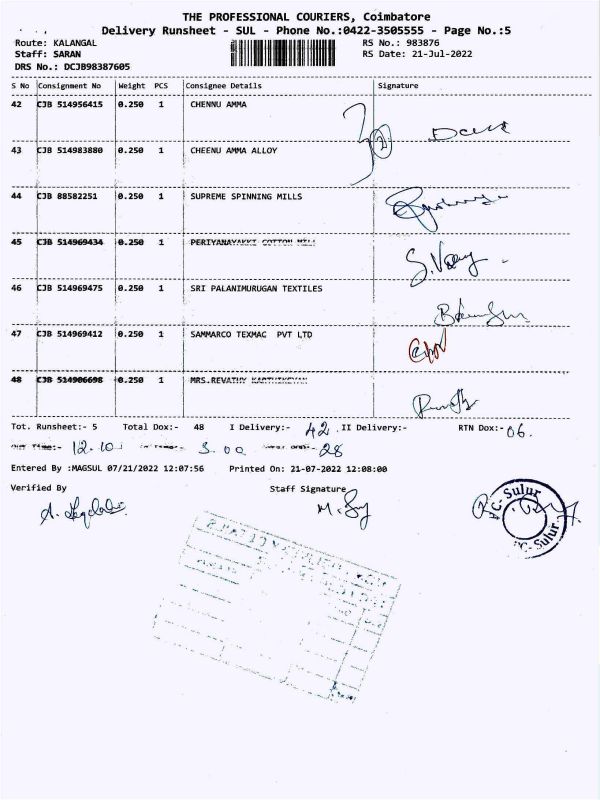 THE PROFESSIONAL COURIERS, Coimbatore
Delivery Runsheet - SUL - Phone No.:0422-3505555 - Page No.:5
Route: KALANGAL RS No.: 983876
Staff: SARAN RS Date: 21-Jul-2022
DRS No.: DCJB98387605
S No Consignment No Weight PCS Consignee Details Signature
42 CJB 514956415 0.250 1 CHENNU AMMA
43 CJB 514983880 0.250 1 CHEENU AMMA ALLOY
44 CJB 88582251 0.250 1 SUPREME SPINNING MILLS
45 CJB 514969434 0.250 1 PERIYANAYAKKI COTTON MILL
46 CJB 514969475 0.250 1 SRI PALANIMURUGAN TEXTILES
47 CJB 514969412 0.250 1 SAMMARCO TEXMAC PVT LTD
48 CJB 514906698 0.250 1 MRS.REVATHY KARTHIKEYAN
Tot. Runsheet:- 5 Total Dox:- 48 I Delivery:- 42 II Delivery:- RTN Dox:- 06.
12.10 3.00 28
Entered By :MAGSUL 07/21/2022 12:07:56 Printed On: 21-07-2022 12:08:00
Verified By Staff Signature
PC- Sulur
PC- Sulur